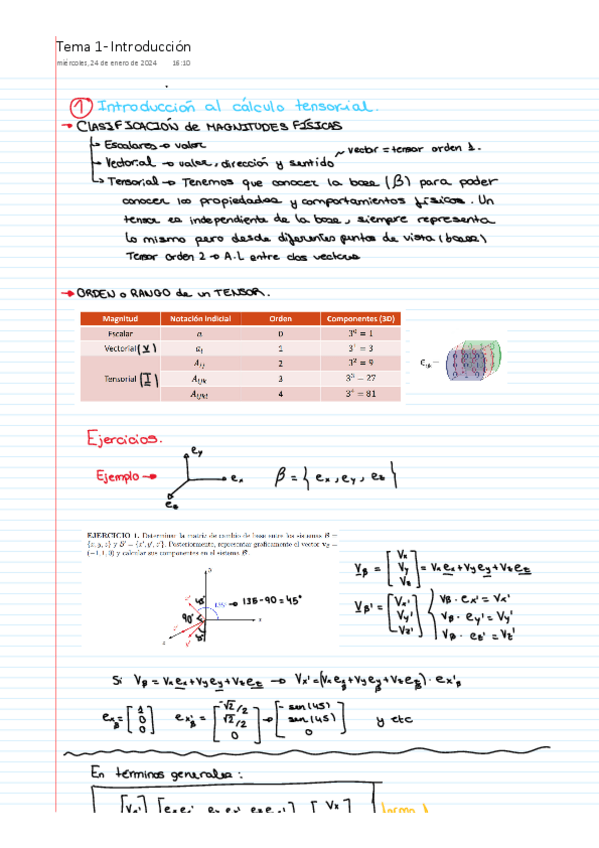 Tema 1- Introducción
miércoles, 24 de enero de 2024 16:10
① Introducción al cálculo tensorial.
→ CLASIFICACIÓN de MAGNITUDES FÍSICAS
Escalares → valor
Vectorial → valor, dirección y sentido ~ vector = tensor orden 1.
Tensorial → Tenemos que conocer la base (β) para poder
conocer las propiedades y comportamientos físicos. Un
tensor es independiente de la base, siempre representa
lo mismo pero desde diferentes puntos de vista (bases)
Tensor orden 2 → A.L entre dos vectores
→ ORDEN o RANGO de un TENSOR.
Magnitud Notación indicial Orden Componentes (3D)
Escalar a 0 3⁰ = 1
Vectorial (v) aᵢ 1 3¹ = 3
Aᵢⱼ 2 3² = 9
Tensorial (T) Aᵢⱼₖ 3 3³ = 27
Aᵢⱼₖₗ 4 3⁴ = 81
Ejercicios.
Ejemplo → ey ex ez β = { ex, ey, ez }
EJERCICIO 1. Determinar la matriz de cambio de base entre los sistemas B =
{x, y, z} y B' = {x', y', z'}. Posteriormente, representar gráficamente el vector v_B =
(−1, 1, 0) y calcular sus componentes en el sistema B'.
Vβ = [Vx Vy Vz] = Vxex + Vyey + Vzez
Vβ' = [Vx' Vy' Vz'] { Vβ · ex' = Vx'
Vβ · ey' = Vy'
Vβ · ez' = Vz'
45° 135° → 135-90 = 45°
90°
Si Vβ = Vxex + Vyey + Vzez → Vx' = (Vxex + Vyey + Vzez) · ex'β
exβ = [1 0 0] ex'β = [-√2/2 √2/2 0] → [- sen(45) sen(45) 0] y etc
En términos generales: